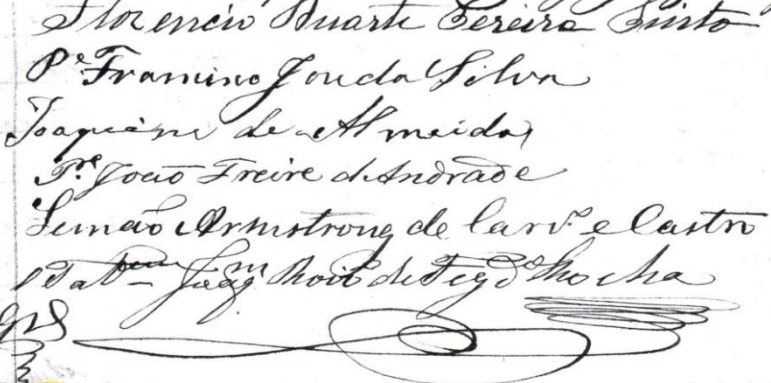 Florencio Duarte Pereira Pinto
Pe. Framino Jou da Silva
Joaquim de Almeida
Pre. João Freire d'Andrade
Simão Armstrong de Carvo. e Castro
Joaqm. Roiz de Rocha